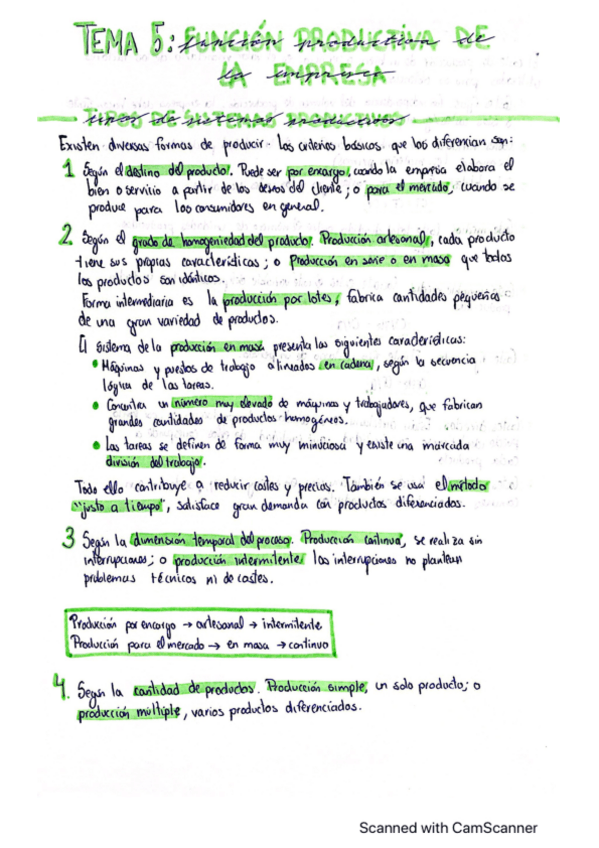 TEMA 5: FUNCIÓN PRODUCTIVA DE
LA EMPRESA
TIPOS DE SISTEMAS PRODUCTIVOS
Existen diversas formas de producir. Los criterios básicos que los diferencian son:
1 Según el destino del producto. Puede ser por encargo, cuando la empresa elabora el
bien o servicio a partir de los deseos del cliente; o para el mercado, cuando se
produce para los consumidores en general.
2. Según el grado de homogeniedad del producto. Producción artesanal, cada producto
tiene sus propias características; o Producción en serie o en masa que todos
los productos son idénticos.
Forma intermediaria es la producción por lotes, fabrica cantidades pequeñas
de una gran variedad de productos.
El sistema de la producción en masa presenta las siguientes características:
• Máquinas y puestos de trabajo alineados en cadena, según la secuencia
lógica de las tareas.
• Concentra un número muy elevado de máquinas y trabajadores, que fabrican
grandes cantidades de productos homogéneos.
• Las tareas se definen de forma muy minuciosa y existe una marcada
división del trabajo.
Todo ello contribuye a reducir costes y precios. También se usa el método
"justo a tiempo", satisface gran demanda con productos diferenciados.
3 Según la dimensión temporal del proceso. Producción continua, se realiza sin
interrupciones; o producción intermitente las interrupciones no plantean
problemas técnicos ni de costes.
Producción por encargo → artesanal → intermitente
Producción para el mercado → en masa → continuo
4. Según la cantidad de productos. Producción simple, un solo producto; o
producción múltiple, varios productos diferenciados.
Scanned with CamScanner